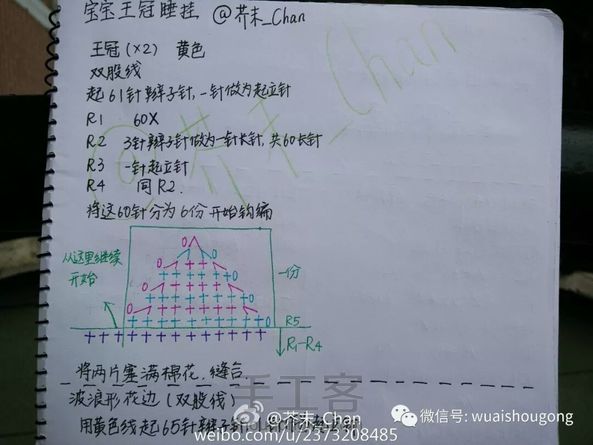 宝宝王冠睡挂 @芥末_Chan
王冠(×2) 黄色
双股线
起61针辫子针,一针做为起立针
R1 60X
R2 3针辫子针做为一针长针,共60长针
R3 一针起立针
R4 同R2.
将这60针分为6份开始钩编
从这里继续
开始
一份
R5
R1-R4
将两片塞满棉花,缝合.
波浪形花边(双股线)
用黄色线起65针辫子针
@芥末_Chan
手工客
@芥末_Chan
weibo.com/u/2373208485
微信号: wuaishougong